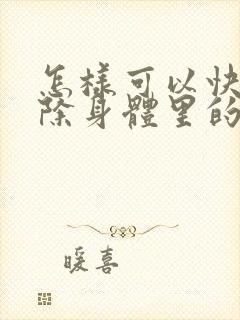 怎樣可以快
除身體里的
暖喜